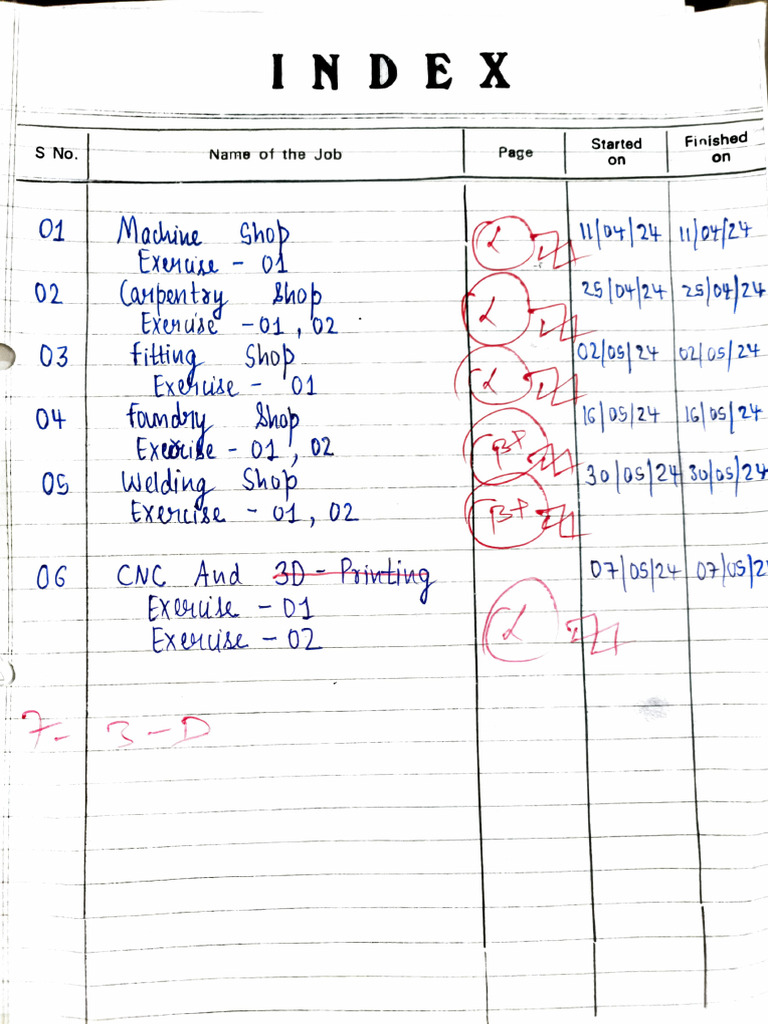 INDEX
S No. Name of the Job Page Started on Finished on
01 Machine Shop α 11/04/24 11/04/24
Exercise - 01
02 Carpentry Shop α 25/04/24 25/04/24
Exercise - 01, 02
03 Fitting Shop α 02/05/24 02/05/24
Exercise - 01
04 Foundry Shop β+ 16/05/24 16/05/24
Exercise - 01, 02
05 Welding Shop β+ 30/05/24 30/05/24
Exercise - 01, 02
06 CNC And 3D - Printing 07/05/24 07/05/2
Exercise - 01 α
Exercise - 02
7- 3-D